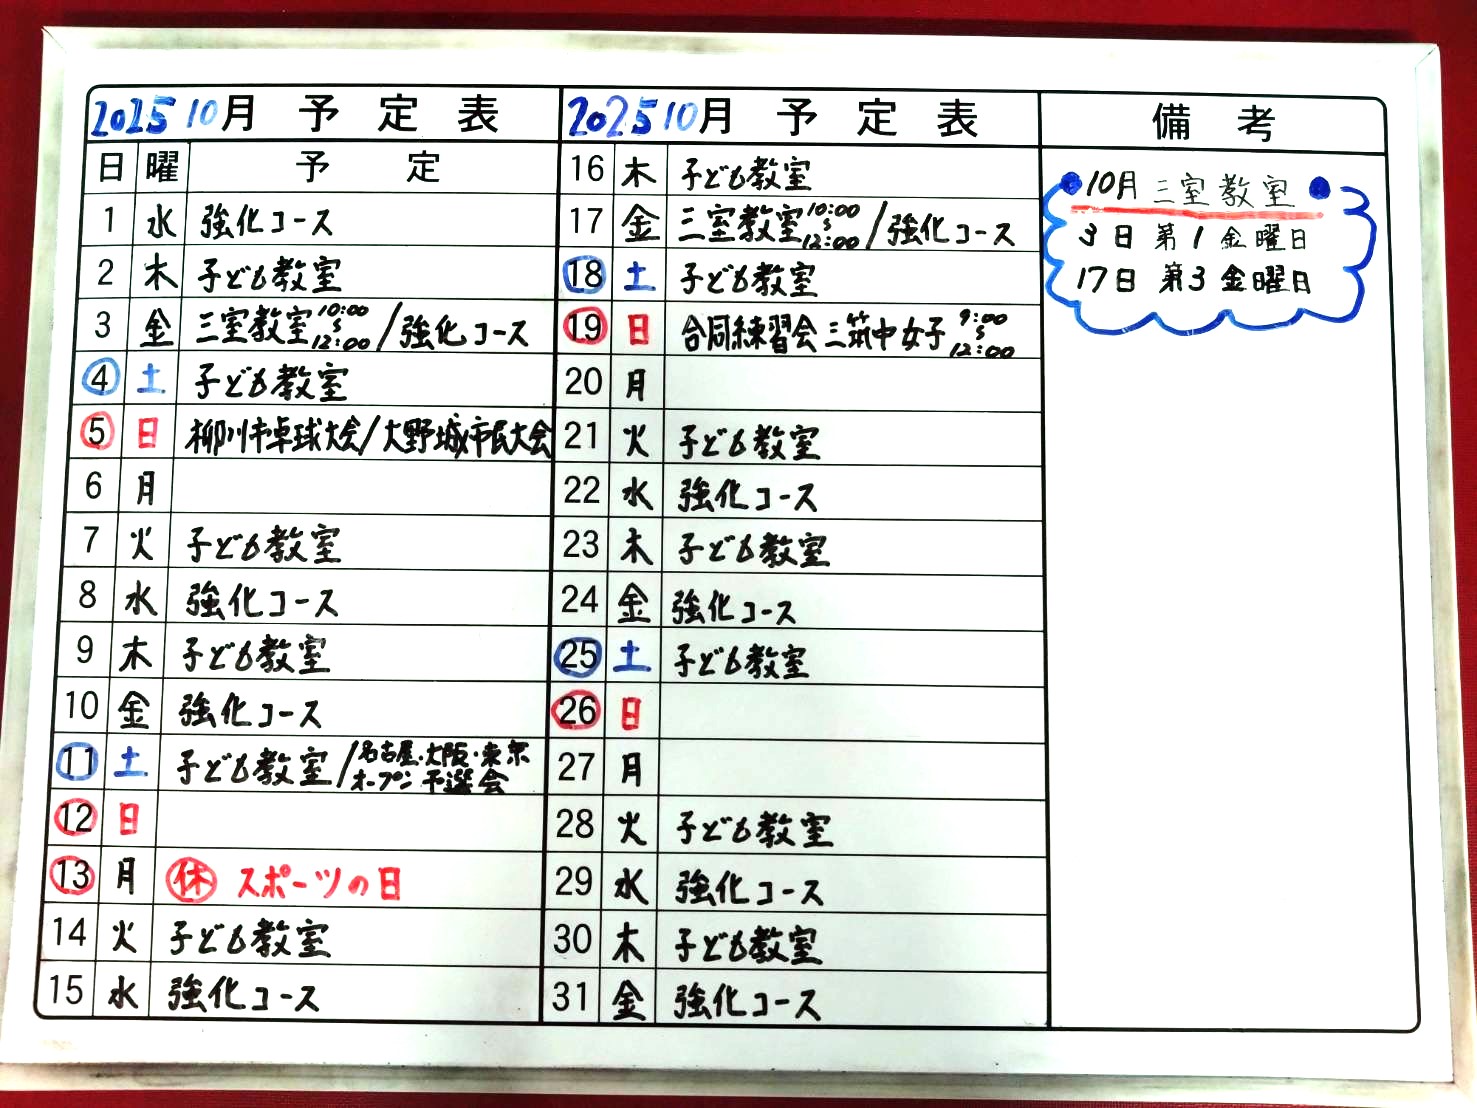 2025 10月 予定表
日 曜 予定
1 水 強化コース
2 木 子ども教室
3 金 三室教室 10:00 〜 12:00 / 強化コース
4 土 子ども教室
5 日 柳川市卓球大会/大野城市民大会
6 月
7 火 子ども教室
8 水 強化コース
9 木 子ども教室
10 金 強化コース
11 土 子ども教室/名古屋・大阪・東京オープン予選会
12 日
13 月 休 スポーツの日
14 火 子ども教室
15 水 強化コース
2025 10月 予定表
16 木 子ども教室
17 金 三室教室 10:00 〜 12:00 / 強化コース
18 土 子ども教室
19 日 合同練習会 三筑中女子 9:00 〜 12:00
20 月
21 火 子ども教室
22 水 強化コース
23 木 子ども教室
24 金 強化コース
25 土 子ども教室
26 日
27 月
28 火 子ども教室
29 水 強化コース
30 木 子ども教室
31 金 強化コース
備考
10月 三室教室
3日 第1金曜日
17日 第3金曜日